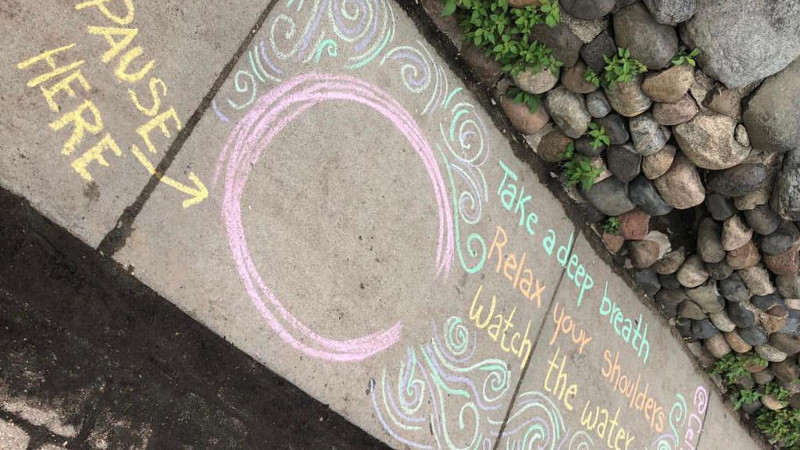 PAUSE
HERE
Take a deep breath
Relax your shoulders
Watch the water